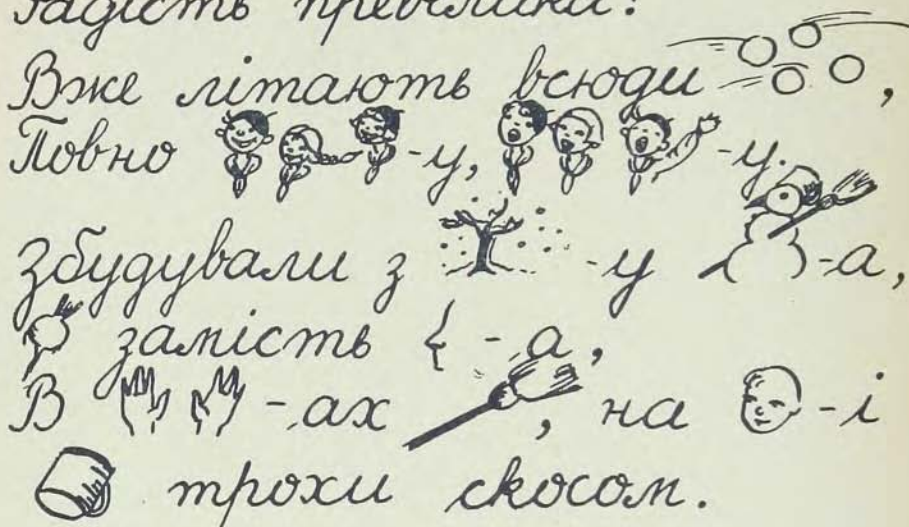 радість превелика!
Вже літають всюди ,
Повно -у, -у.
Збудували з -у -а,
замість -а,
В -ах , на -і
трохи скосом.